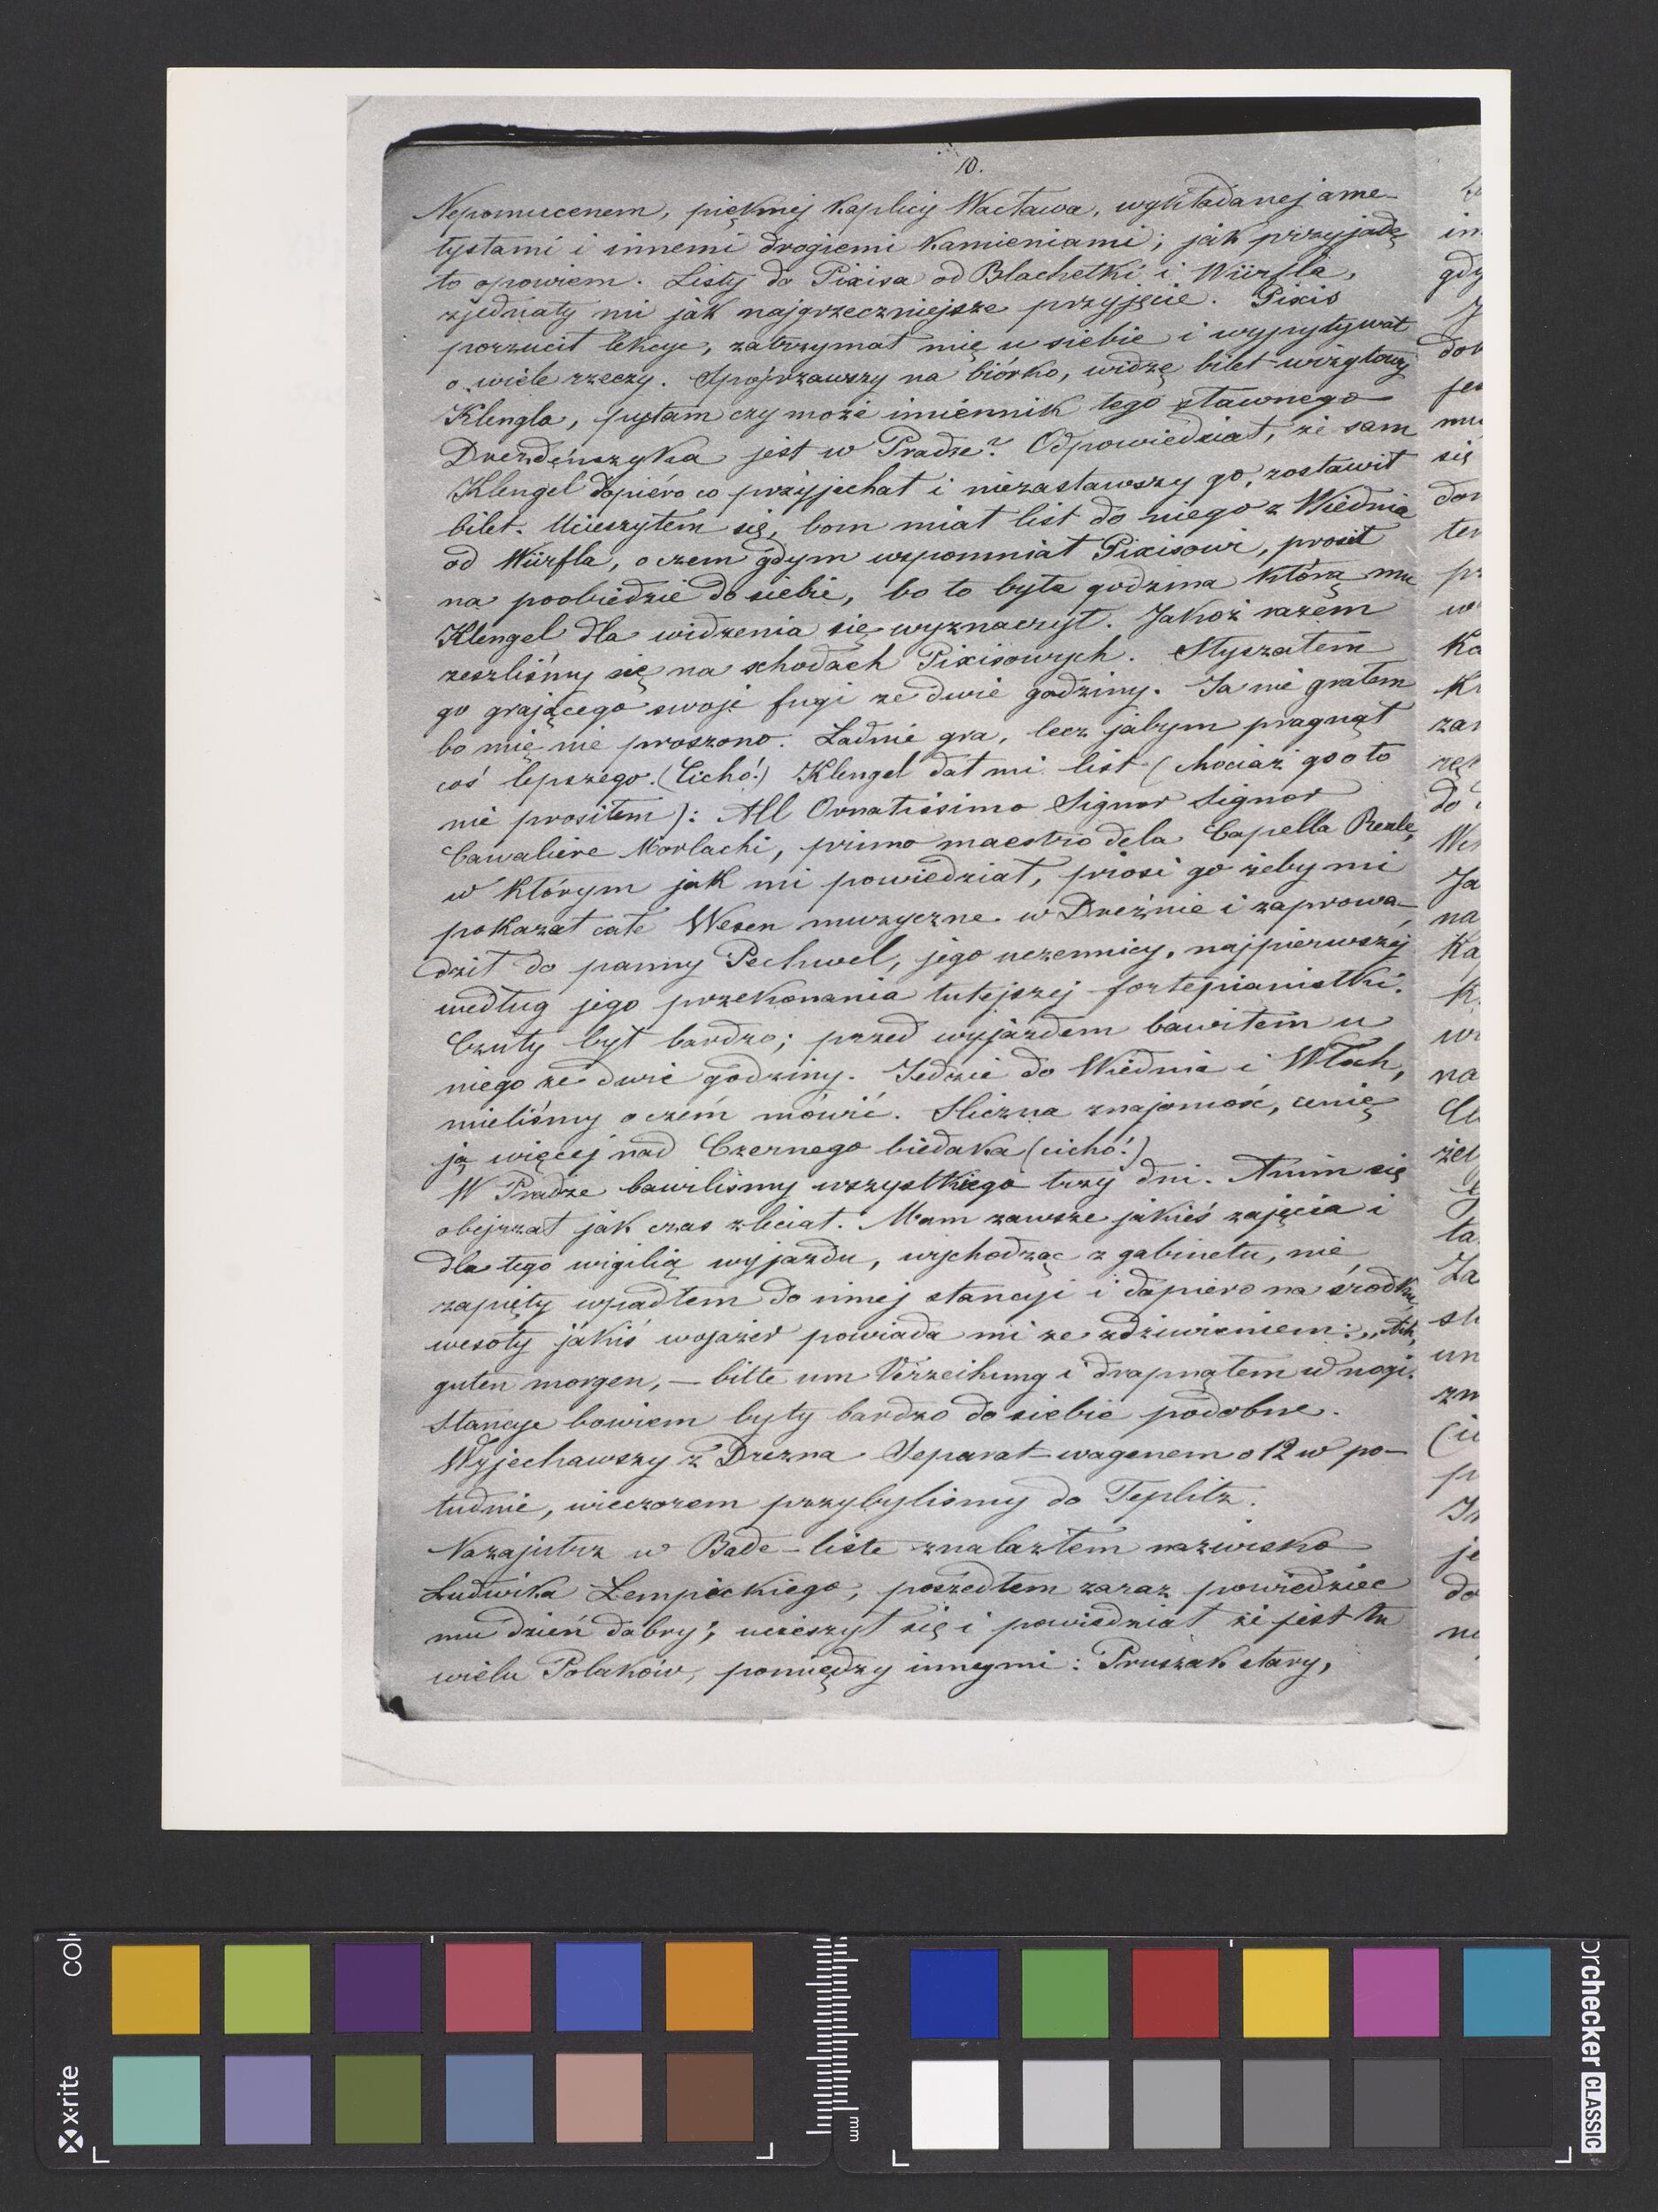 10.
Nepomucenem, pięknej kaplicy Wacława, wykładanej ame-
tystami i innemi drogiemi kamieniami; jak przyjadę
to opowiem. Listy do Pixisa od Blachetki i Würfla,
zjednały mi jak najgrzeczniejsze przyjęcie. Pixis
porzucił lekcye, zatrzymał mię u siebie i wypytywał
o wiele rzeczy. Spojrzawszy na biórko, widzę bilet wizytowy
Klengla, pytam czy może imiennik tego sławnego
Drezdeńszyka jest w Pradze? Odpowiedział, że sam
Klengel dopiéro co przyjechał i niezastawszy go, zostawił
bilet. Ucieszyłem się, bom miał list do niego z Wiednia
od Würfla, o czem gdym wspomniał Pixisowi, prosił
na poobiedzie do siebie, bo to była godzina którą mu
Klengel dla widzenia się wyznaczył. Jakoż razem
zeszliśmy się na schodach Pixisowych. Słyszałem
go grającego swoje fugi ze dwie godziny. Ja nie grałem
bo mię nie proszono. Ładnie gra, lecz jabym pragnął
coś lepszego. (Cichó!) Klengel dał mi list (chociaż go o to
nie prosiłem): All Ornatissimo Signor Signor
Cavaliere Morlachi, primo maestro dela Capella Reale,
w którym jak mi powiedział, prosi go żeby mi
pokazał całe Wesen muzyczne w Dreźnie i zaprowa-
dził do panny Pechwel, jego uczennicy, najpierwszéj
według jego przekonania tutejszej fortepianistki.
Czuły był bardzo; przed wyjazdem bawiłem u
niego ze dwie godziny. Jedzie do Wiednia i Włoch,
mieliśmy o czém mówić. Śliczna znajomość, cenię
ją więcéj nad Czernego biedaka (cichó!)
W Pradze bawiliśmy wszystkiego trzy dni. Anim się
obejrzał jak czas zleciał. Mam zawsze jakieś zajęcia i
dla tego wigilią wyjazdu, wychodząc z gabinetu, nie
zapięty wpadłem do innej stancyi i dopiero na środku,
wesoły jakiś wojażer powiada mi ze zdziwieniem: „Ach,
guten morgen, — bitte um Verzeihung i drapnąłem w nogi.
Stancye bowiem były bardzo do siebie podobne.
Wyjechawszy z Drezna Separat-wagenem o 12 w po-
łudnie, wieczorem przybyliśmy do Teplitz.
Nazajutrz w Bade-liste znalazłem nazwisko
Ludwika Łempickiego, poszedłem zaraz powiedzieć
mu dzień dobry; ucieszył się i powiedział że jest tu
wielu Polaków, pomiędzy innymi: Pruszak stary,
x-rite
mm
orchecker CLASSIC